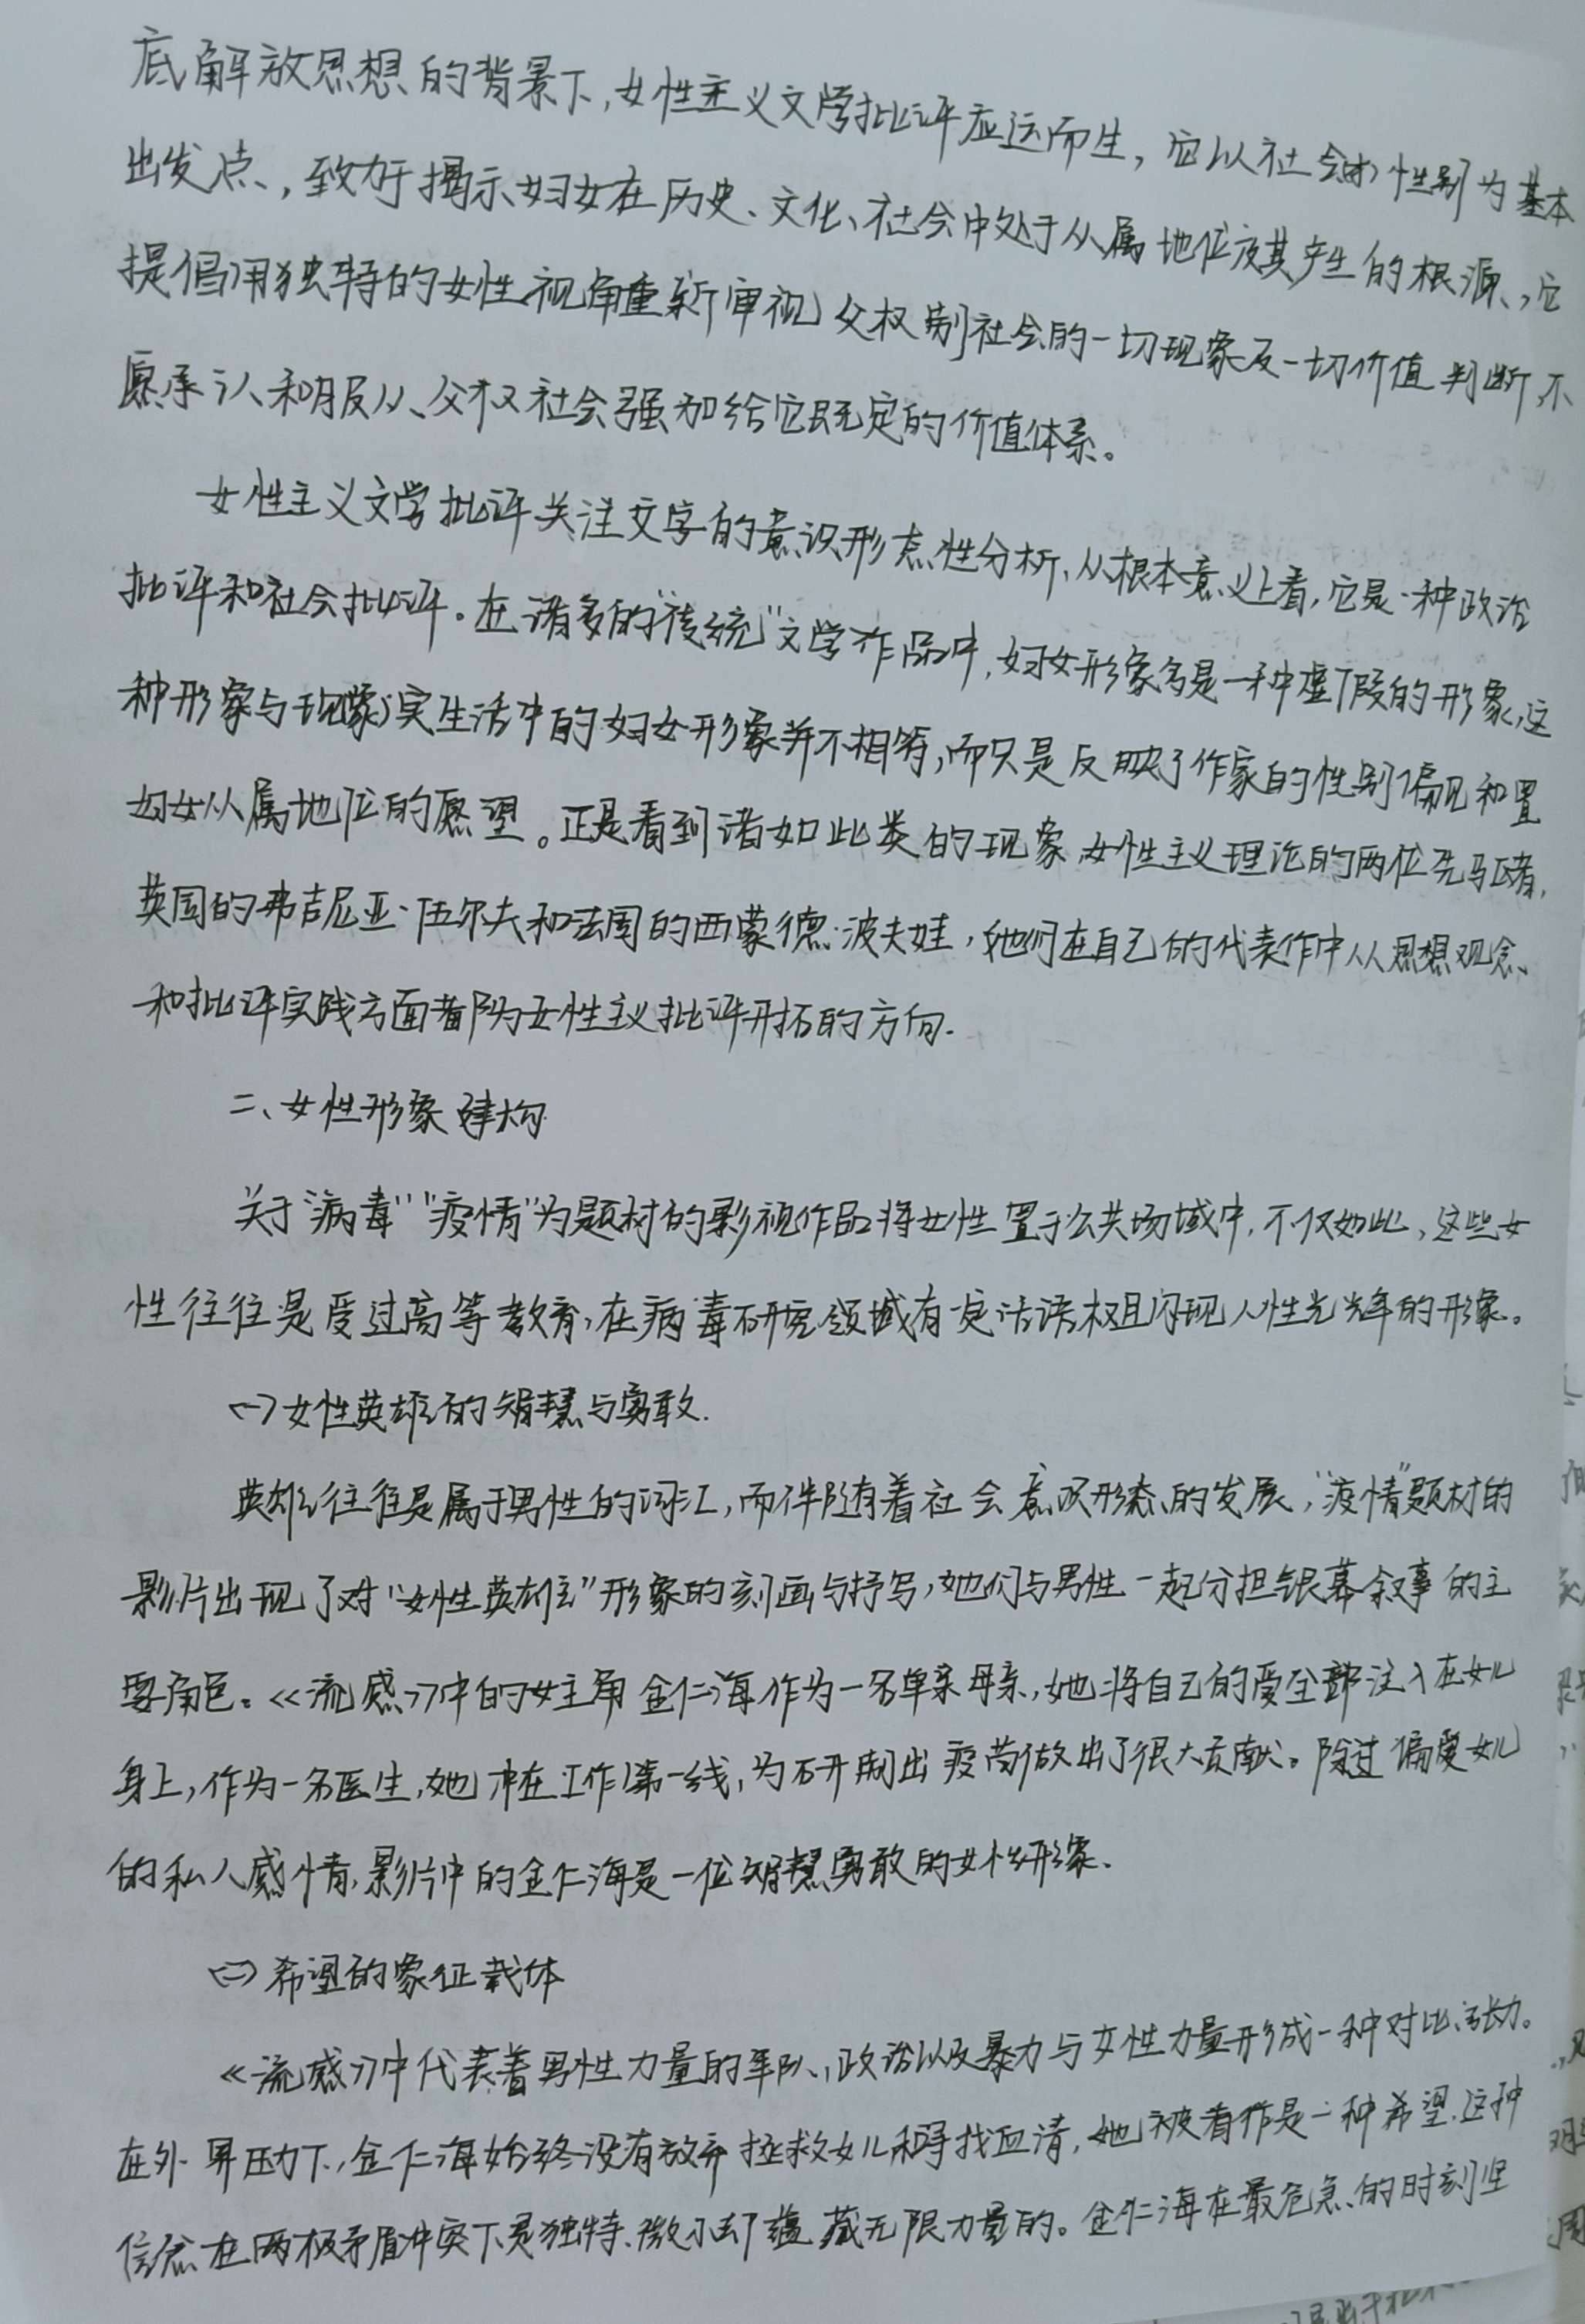 底解放思想的背景下,女性主义文学批评应运而生,它以社会的性别为基本
出发点,致力于揭示妇女在历史、文化、社会中处于从属地位及其产生的根源,它
提倡用独特的女性视角重新审视父权制社会的一切现象及一切价值判断,不
愿承认和服从父权社会强加给它既定的价值体系。
女性主义文学批评关注文字的意识形态性分析,从根本意义上看,它是一种政治
批评和社会批评。在诸多的“传统”文学作品中,妇女形象多是一种虚假的形象,这
种形象与现实生活中的妇女形象并不相等,而只是反映了作家的性别偏见和置
妇女从属地位的愿望。正是看到诸如此类的现象,女性主义理论的两位先驱者,
英国的弗吉尼亚·伍尔夫和法国的西蒙德·波夫娃,她们在自己的代表作中从思想观念
和批评实践方面都为女性主义批评开拓的方向.
二、女性形象建构
关于“病毒”“疫情”为题材的影视作品将女性置于公共场域中,不仅如此,这些女
性往往是受过高等教育,在病毒研究领域有一定话语权且闪现人性光辉的形象。
(一)女性英雄的智慧与勇敢.
英雄往往是属于男性的词汇,而伴随着社会意识形态的发展,“疫情”题材的
影片出现了对“女性英雄”形象的刻画与抒写,她们与男性一起分担银幕叙事的主
要角色。《流感》中的女主角金仁海作为一名单亲母亲,她将自己的爱全部注入在女儿
身上,作为一名医生,她冲在工作第一线,为研制出疫苗做出了很大贡献。除过偏爱女儿
的私人感情,影片中的金仁海是一位智慧勇敢的女性形象.
(二)希望的象征载体
《流感》中代表着男性力量的军队,政治以及暴力与女性力量形成一种对比张力。
在外界压力下,金仁海始终没有放弃拯救女儿和寻找血清,她被看作是一种希望.这种
信念在两极矛盾冲突下是独特、微小却蕴藏无限力量的。金仁海在最危急的时刻坚